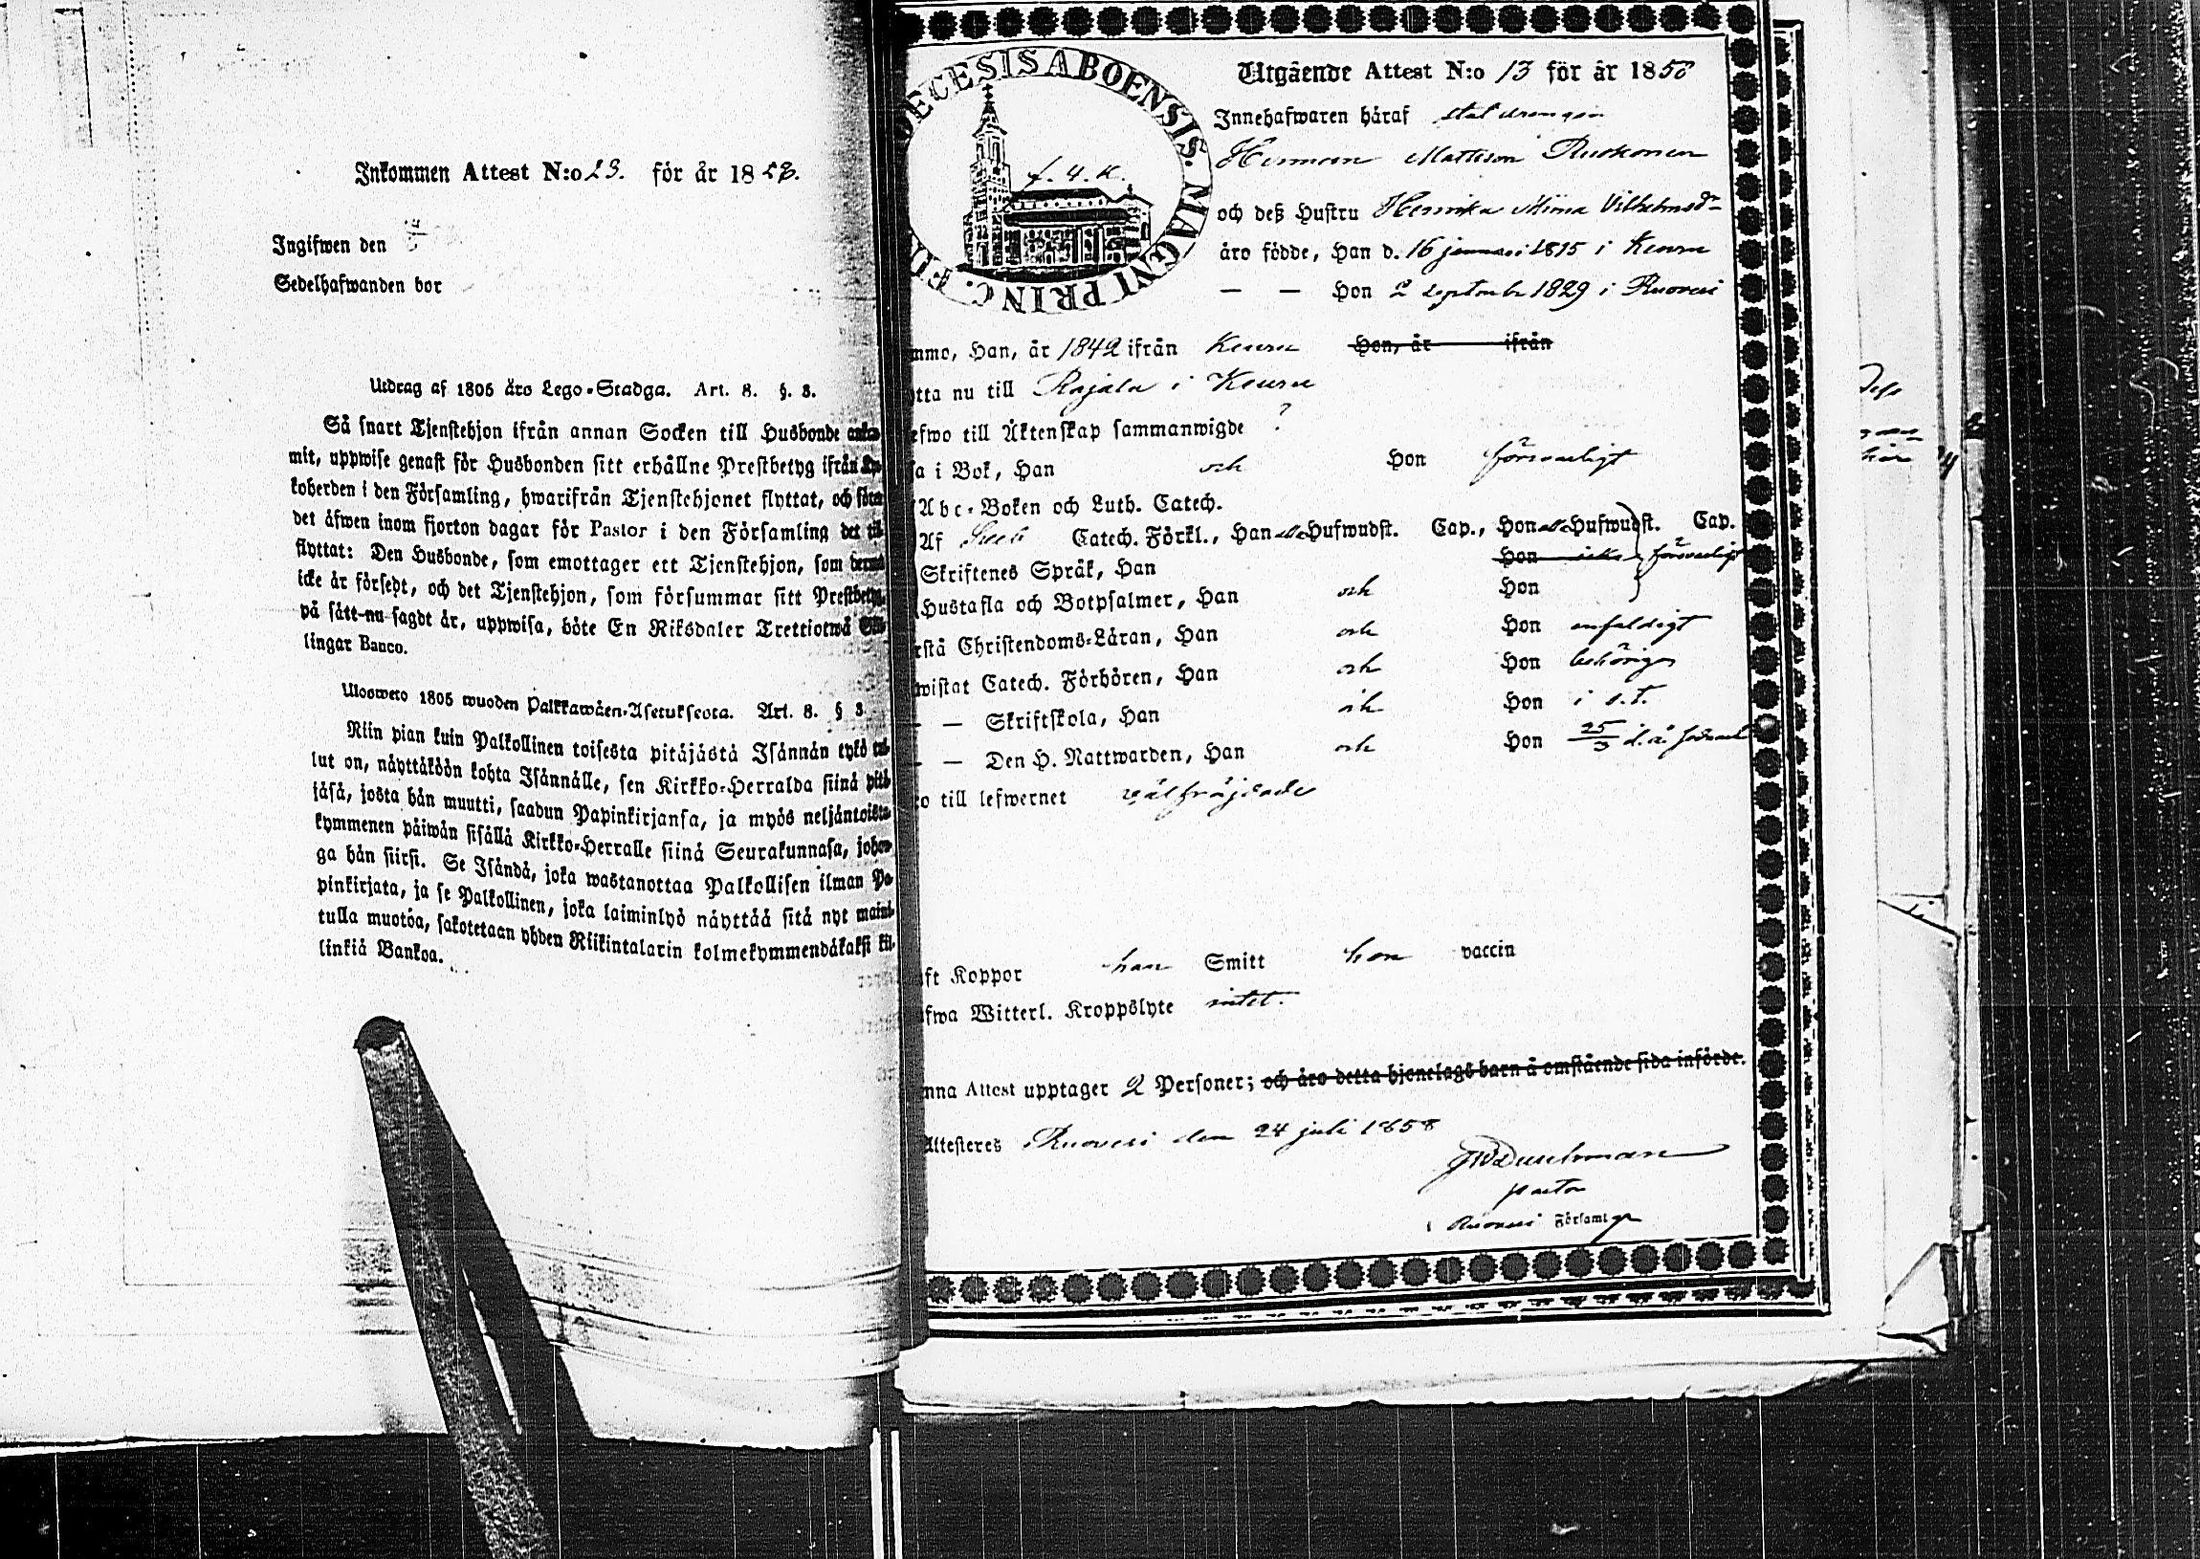 Inkommen Attest N:o 23. för år 1858.
Ingifwen den
Sedelhafwanden bor
Utdrag af 1805 års Lego-Stadga. Art. 8. §. 3.
Så snart Tjenstehjon ifrån annan Socken till Husbonde
mit, uppwise genast för Husbonden sitt erhållne Prestbetyg ifrån
koherden i den Församling, hwarifrån Tjenstehjonet flyttat, och
det åfwen inom fjorton dagar för Pastor i den Församling det
flyttat: Den Husbonde, som emottager ett Tjenstehjon, som
icke år försedt, och det Tjenstehjon, som försummar sitt Prestbetyg,
på sått nu sagdt år, uppwisa, böte En Riksdaler Trettiotwå
lingar Banco.
Uloswето 1805 wuoden Palkkawåen-Asetuksesta. Art. 8. § 3
Niin pian kuin Palkollinen toisesta pitåjåstå Isånnån tykö
lut on, nåyttåköön kohta Isånnålle, sen Kirkko-Herralda siinå
jåså, josta hån muutti, saadun Papinkirjansa, ja myös neljåntoista
kymmenen påiwån sisållå Kirkko-Herralle siinå Seurakunnasa, johon-
ga hån siirsi. Se Isåndå, joka wastanottaa Palkollisen ilman Pa-
pinkirjata, ja se Palkollinen, joka laiminlyö nåyttåå sitå nyt
tulla muotoa, sakotetaan yhden Riikintalarin kolmekymmendåkaksi
linkiå Bankoa.
ECESIS ABOENSIS. MAGNI PRINC.
f. d. K.
Utgående Attest N:o 13 för år 1858
Innehafwaren håraf
Herman Mattsson Ruokonen
och desz Hustru Henrika Miina Vilhelmsdr
åro födde, Han d. 16 januari 1815 i Keuru
— — Hon 2 September 1829 i Ruovesi
mmo, Han, år 1842 ifrån Keuru Hon, år ifrån
tta nu till Rajala i Keuru
efwo till Åktenskap sammanwigde ?
sa i Bok, Han och Hon försvarligt
Abc-Boken och Luth. Catech.
Af Catech. Förkl., Han Hufwudst. Cap., Hon Hufwudst. Cap.
Skriftenes Språk, Han Hon försvarligt
Hustafla och Botpsalmer, Han och Hon
rstå Christendoms-Låran, Han och Hon enfaldigt
wistat Catech. Förhören, Han och Hon behörigen
— — Skriftskola, Han och Hon i s.t.
— — Den H. Nattwarden, Han och Hon 25/3 d.å.
ro till lefwernet välfräjdade
ft Koppor han Smitt hon vaccin
afwa Witterl. Kroppslyte intet.
nna Attest upptager 2 Personer; och åro detta hjonelags barn å omstående sida införde.
Attesteres Ruovesi den 24 juli 1858
pastor
Ruovesi Församl